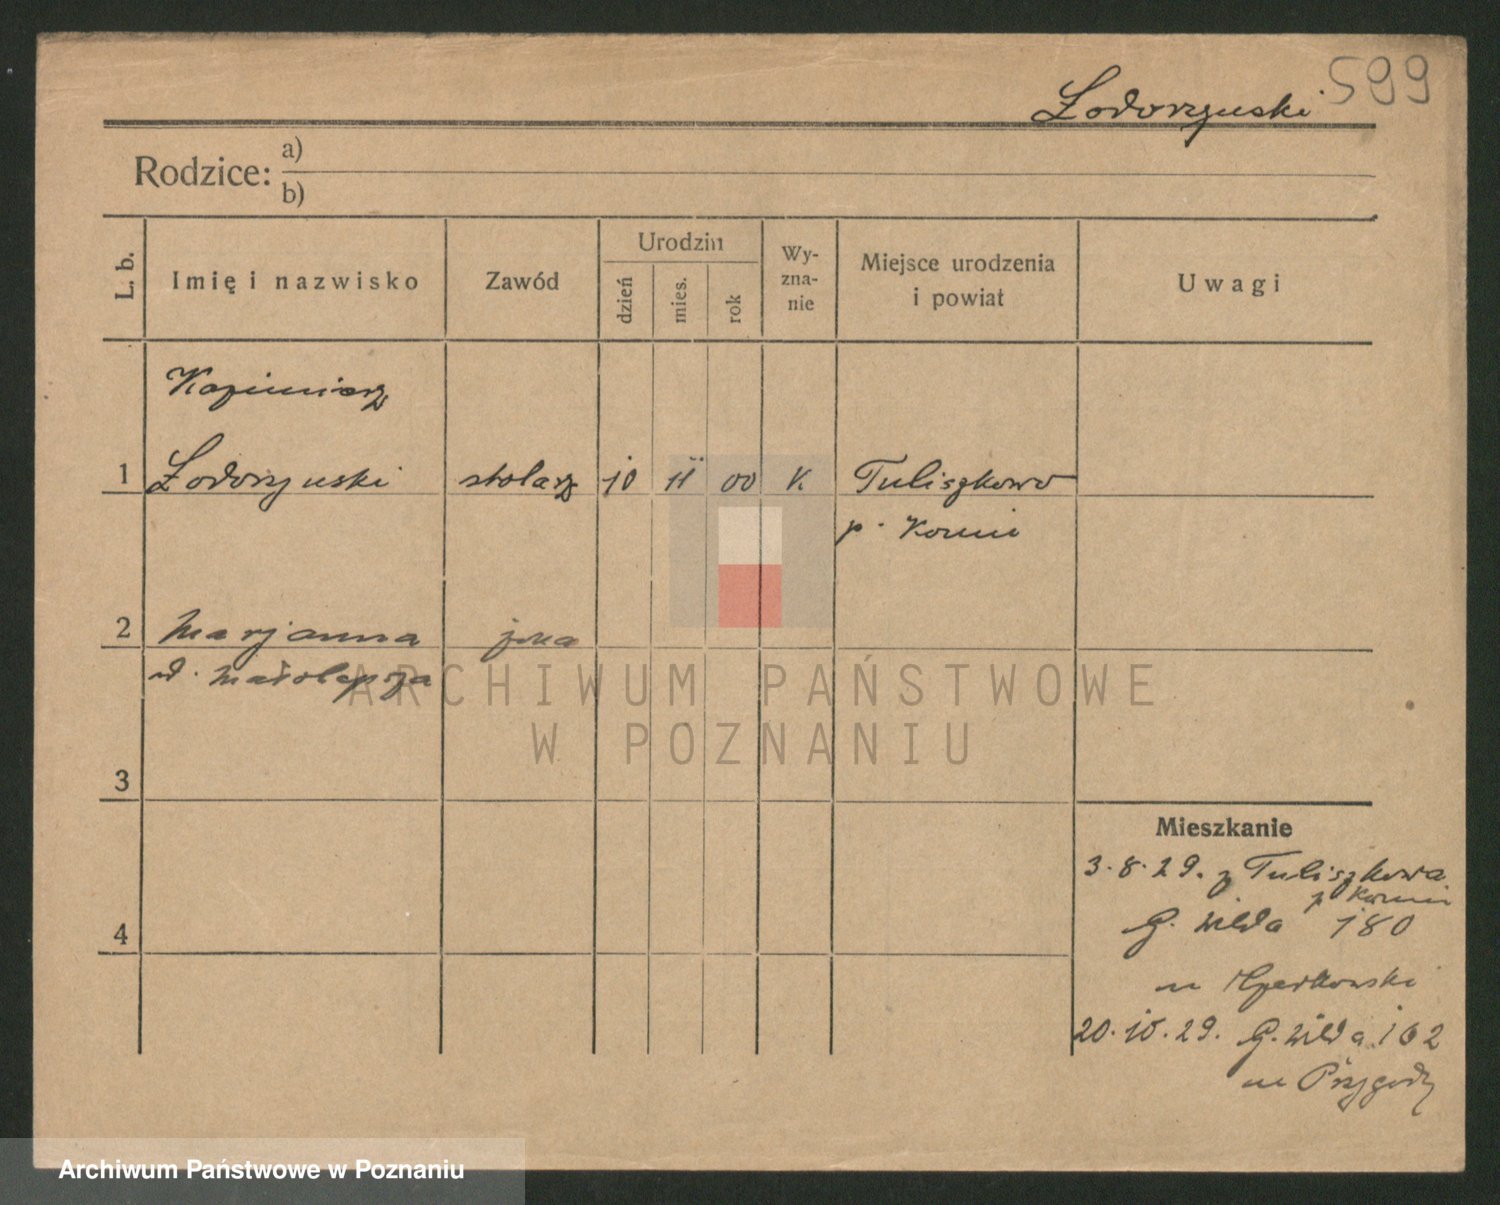 599
Łodorzynski
Rodzice: a)
b)
L. b.
Imię i nazwisko
Zawód
Urodzin
dzień
mies.
rok
Wy-
zna-
nie
Miejsce urodzenia
i powiat
Uwagi
Kazimierz
1 Łodorzynski stolarz 10 11 00 K Tuliszkowo
p. Konin
2 Marjanna żona
d. Małolepsza
3
4
Mieszkanie
3.8.29. z Tuliszkowa
p Konin
G. Wilda 180
m
20.10.29. G. Wilda 102
m Przygody
ARCHIWUM PAŃSTWOWE
W POZNANIU
Archiwum Państwowe w Poznaniu